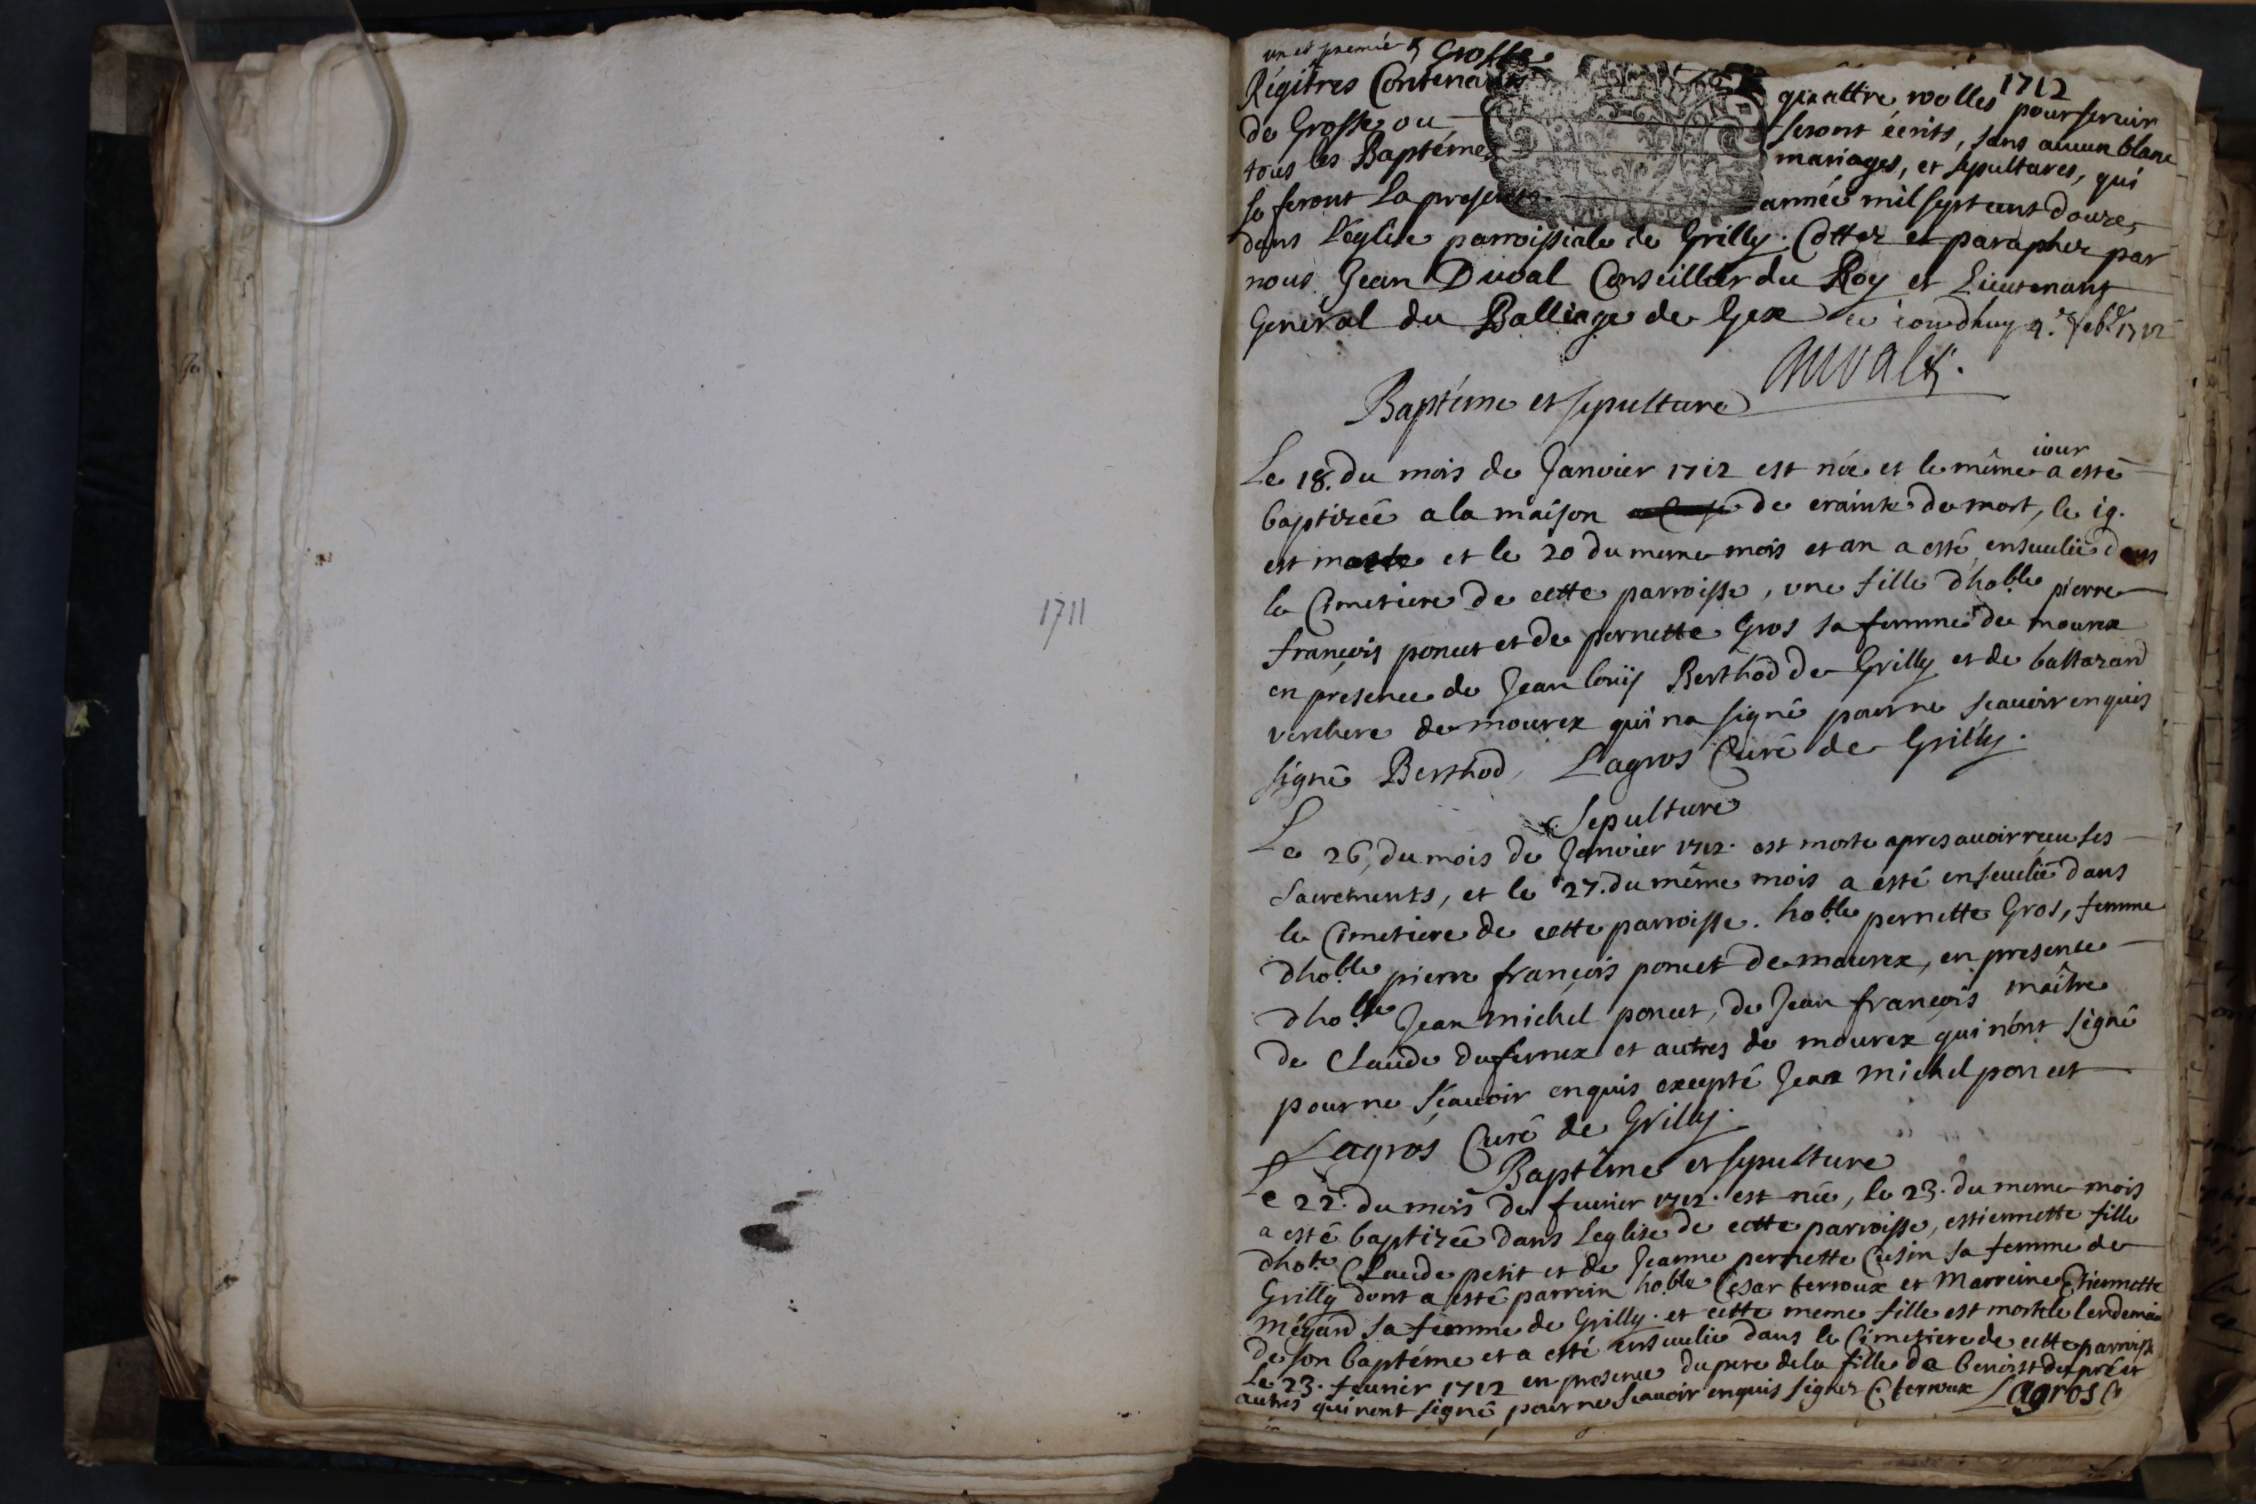 1711
1712
un et premier Grosse
Régitres Contenant quattre rolles pour servir
de Grosse ou seront écrits, sans aucun blanc
tous les Baptémes mariages, et sepultures, qui
se feront La presente année mil sept cent douze,
dans L'église parroissiale de Grilly. Cotter et parapher par
nous Jean Duval Conseiller du Roy et Lieutenant
General du Balliage de Gex ce jourdhuy 4.e febr 1712
Duval
Baptéme et sepulture
Le 18. du mois de Janvier 1712 est née et le même jour a esté
baptizéé a la maison de crainte de mort, le 19.
est morte et le 20 du meme mois et an a esté ensevelie dans
le Cimetiere de cette parroisse, une fille dhoble pierre
françois poncet et de pernette Gros sa femme de mourex
en presence de Jean loüis Berthod de Grilly et de baltazard
verchere de mourex qui na signé pour ne scauoir enquis
signé Berthod, Lagros Curé de Grilly.
Sepulture
Le 26, du mois de Janvier 1712. est morte apres auoir receu ses
Sacrements, et le 27. du même mois a esté enseuelie dans
le Cimetiere de cette parroisse. hoble pernette Gros, femme
dhoble pierre françois poncet de mourex, en presence
dhoble Jean michel poncet, de Jean françois maître
de Claude dufernex et autres de mourex qui n'ont signé
pour ne sçauoir enquis excepté Jean michel poncet
Lagros Curé de Grilly.
Baptême et sepulture
Le 22. du mois de feurier 1712. est née, le 23. du meme mois
a esté baptizéé dans Leglise de cette parroisse, estiennette fille
dhoble Claude petit et de Jeanne pernette Cusin sa femme de
Grilly dont a esté parrein hoble Cesar terroux et Marreine Etiennette
mégard sa femme de Grilly. et cette meme fille est morte le lendemain
de son baptéme et a esté enseuelie dans le Cimetiere de cette parroisse
Le 23. feurier 1712 en presence du pere de la fille de benoist dupré et
autres qui n'ont signé pour ne scauoir enquis signez C terroux Lagros C